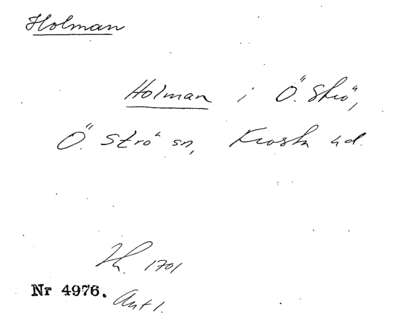 Holman
Holman i Ö. Strö,
Ö. Strö sn, Frosta hd.
1701
Nr 4976. Ant 1.